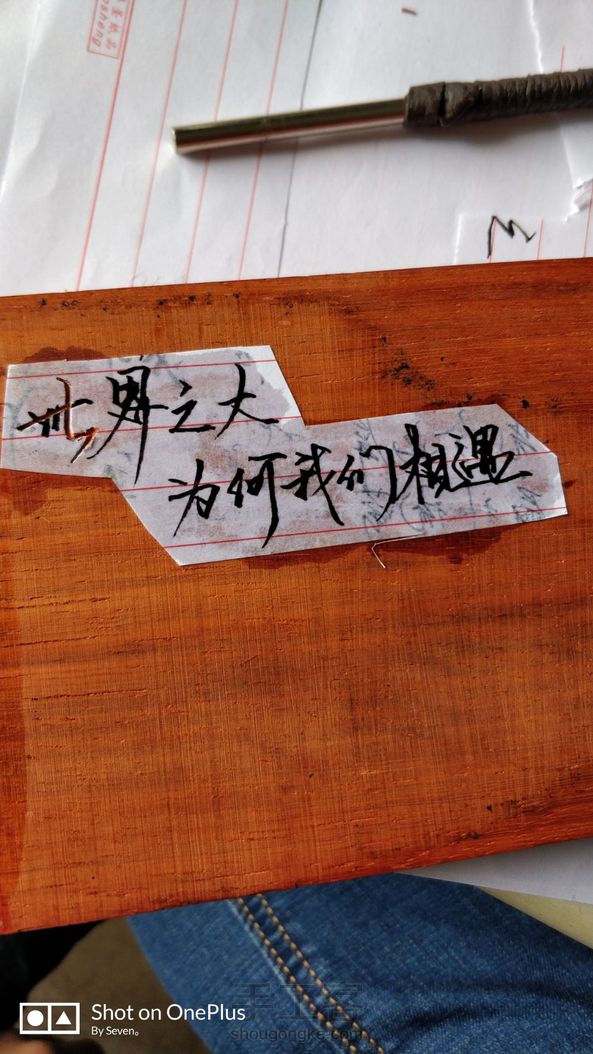 世界之大
为何我们相遇
Shot on OnePlus
By Seven。
手工客
shougongke.com